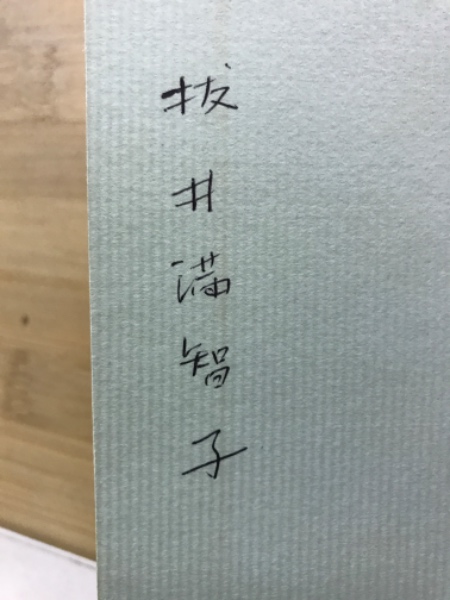 拔井満智子